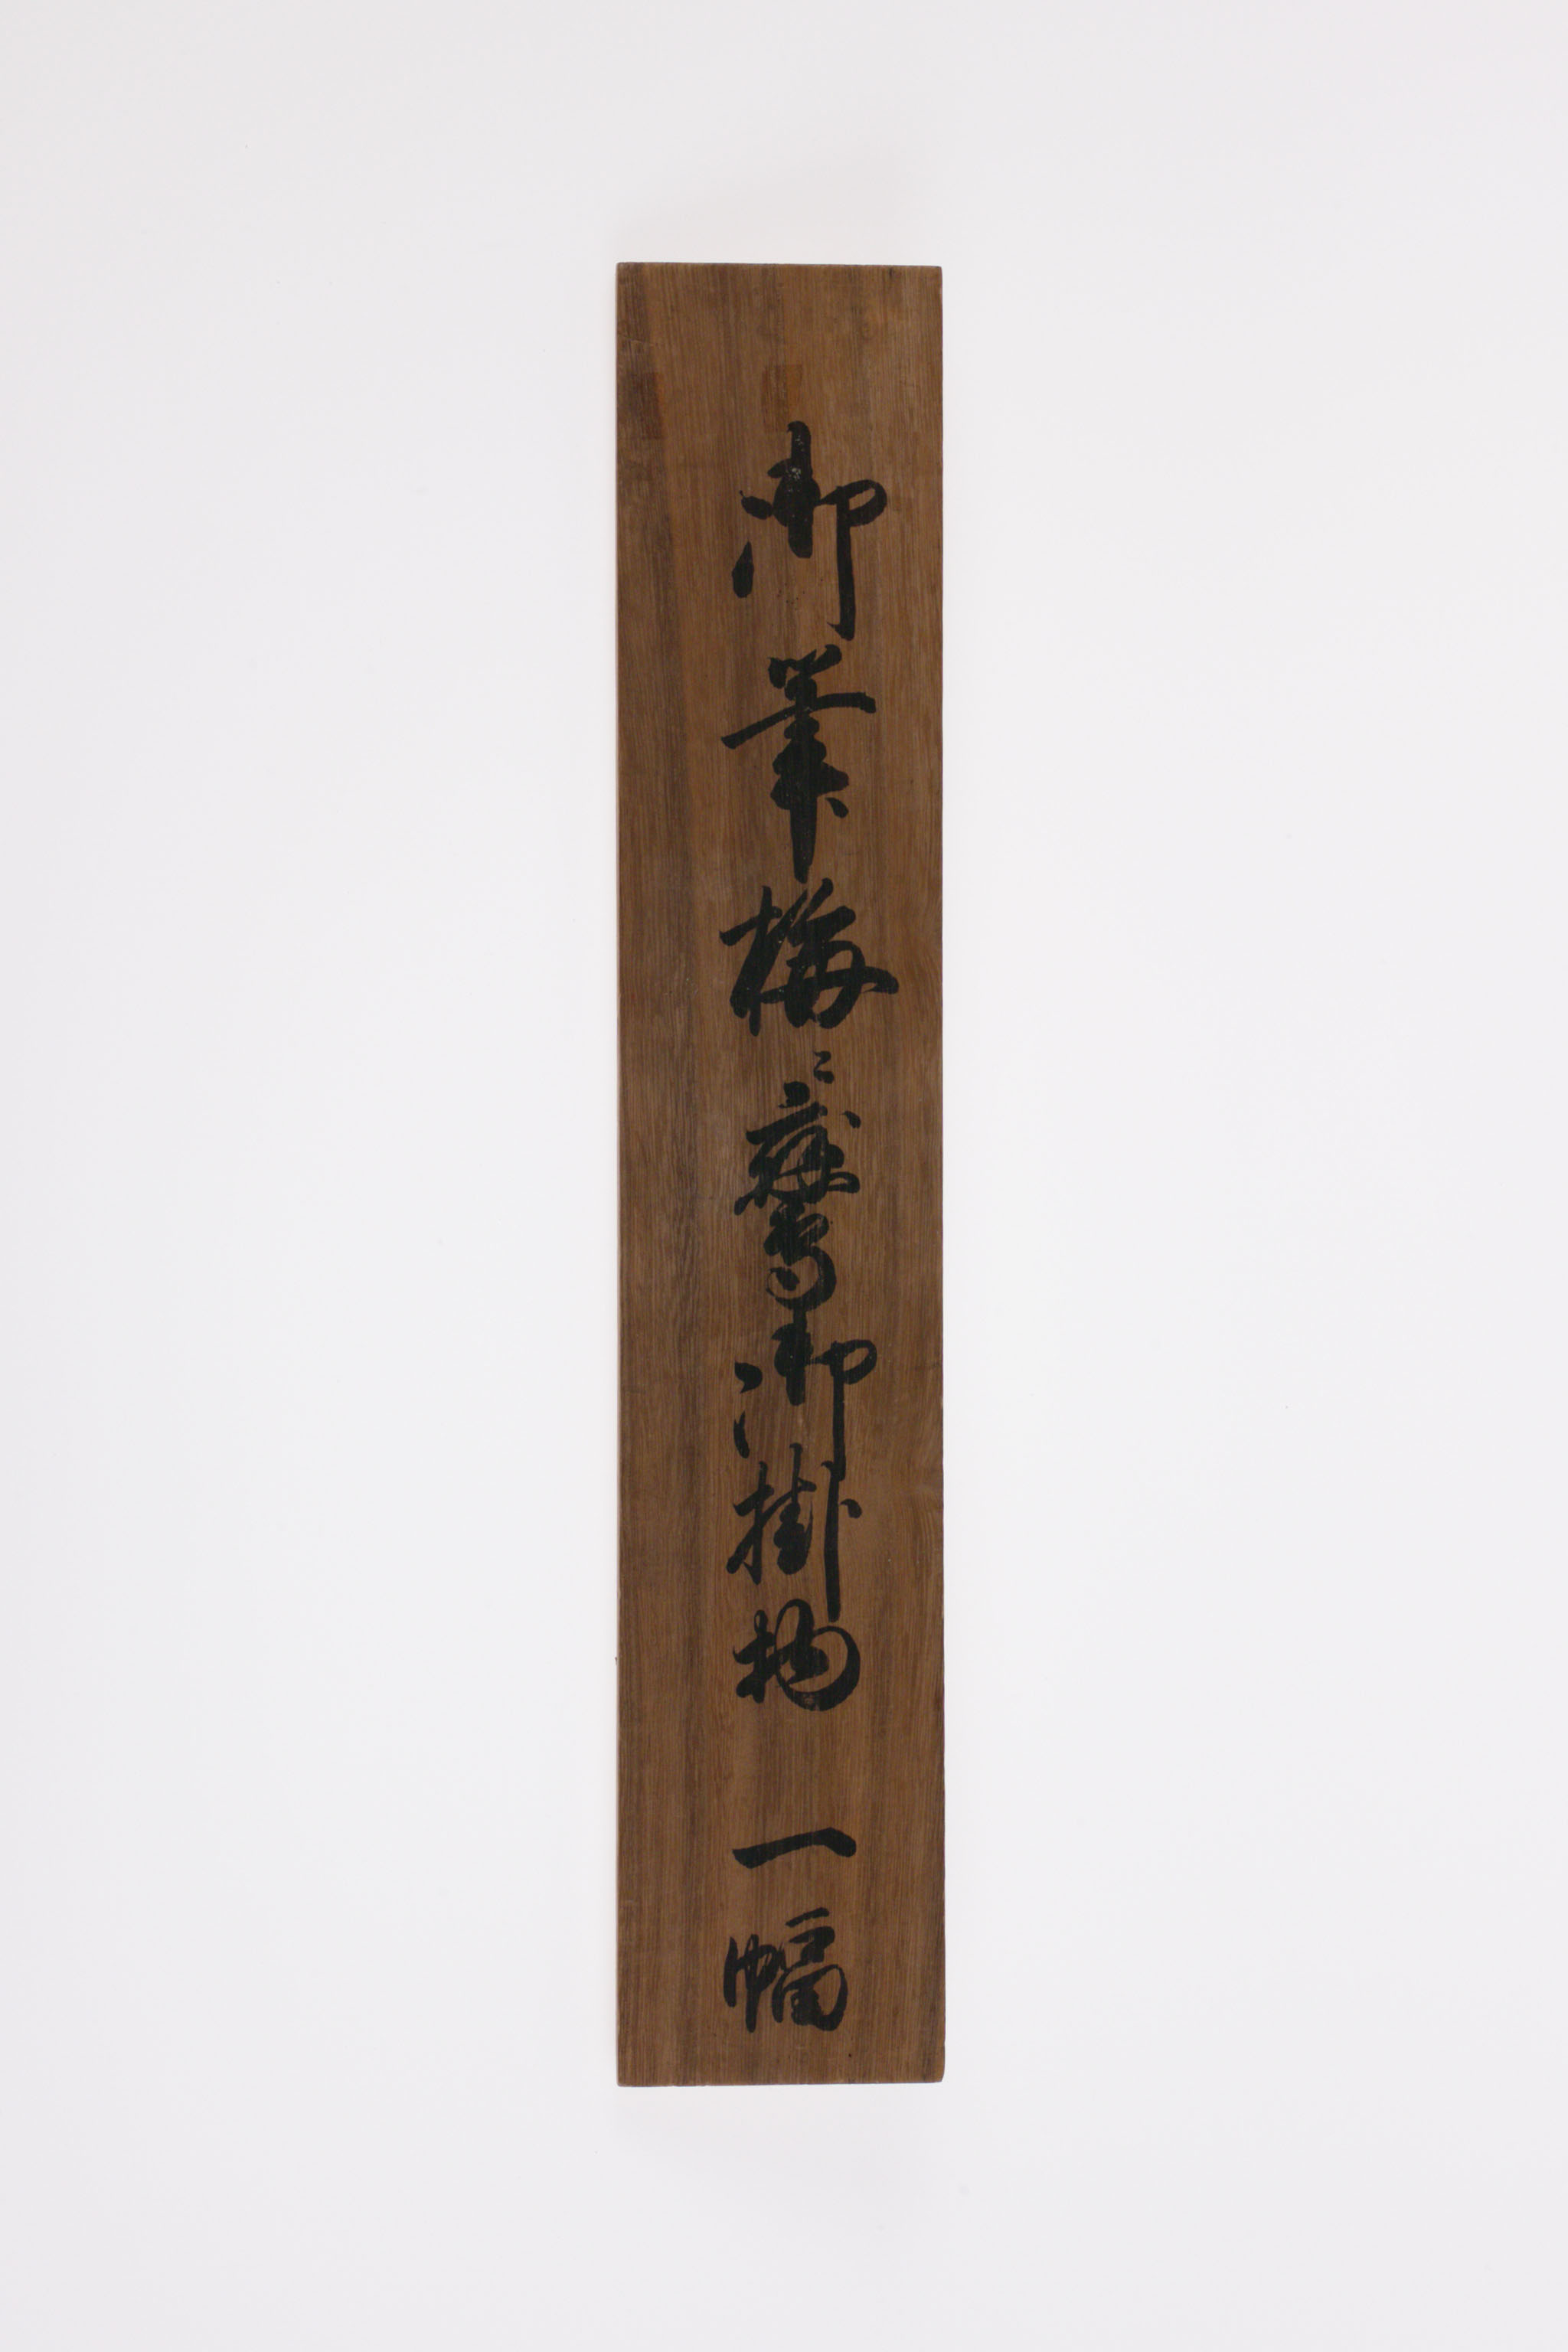 御筆梅ニ鷹御掛物 一幅